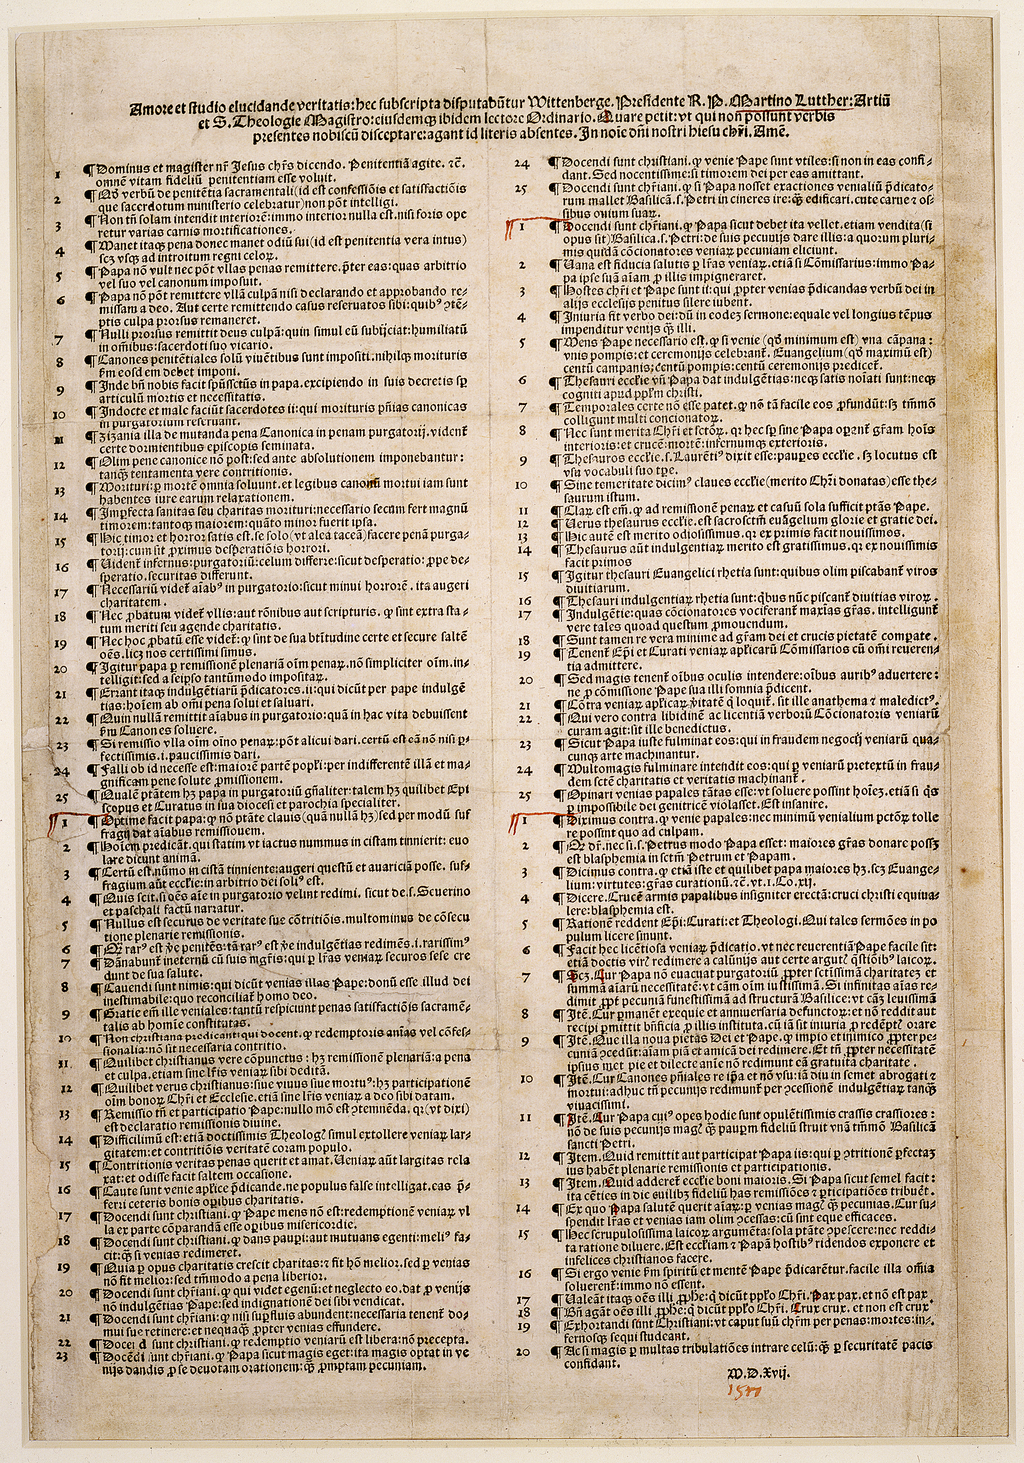 Amore et studio elucidande veritatis: hec subscripta disputabũtur Wittenberge. Presidente R. P. Martino Lutther: Artiũ
et S. Theologie Magistro: eiusdemqꝫ ibidem lectore Ordinario. Quare petit: vt qui non possunt verbis
presentes nobiscũ disceptare: agant id literis absentes. In noĩe dñi nostri hiesu chr̃i. Amẽ.
1 ¶ Dominus et magister nr̃ Jesus chr̃s dicendo. Penitentiã agite. ⁊c̃.
omnẽ vitam fideliũ penitentiam esse voluit.
2 ¶ Qđ verbũ de penitẽtia sacramentali (id est confessiõis et satisfactiõis
que sacerdotum ministerio celebratur) non põt intelligi.
3 ¶ Non tñ solam intendit interiorẽ: immo interior nulla est. nisi foris ope
retur varias carnis mortificationes.
4 ¶ Manet itaqꝫ pena donec manet odiũ sui (id est penitentia vera intus)
scꝫ vsqꝫ ad introitum regni celoꝝ.
5 ¶ Papa nõ vult nec põt vllas penas remittere. p̃ter eas: quas arbitrio
vel suo vel canonum imposuit.
6 ¶ Papa nõ põt remittere vllã culpã nisi declarando et approbando re-
missam a deo. Aut certe remittendo casus reseruatos sibi: quibꝰ ꝯtẽ-
ptis culpa prorsus remaneret.
7 ¶ Nulli prorsus remittit deus culpã: quin simul eũ subijciat: humiliatũ
in om̃ibus: sacerdoti suo vicario.
8 ¶ Canones penitẽtiales solũ viuẽtibus sunt impositi. nihilqꝫ morituris
ẜm eosdem debet imponi.
9 ¶ Inde bñ nobis facit spũssctũs in papa. excipiendo in suis decretis sꝑ
articulũ mortis et necessitatis.
10 ¶ Indocte et male faciũt sacerdotes ii: qui morituris pñias canonicas
in purgatorium reseruant.
11 ¶ Zizania illa de mutanda pena Canonica in penam purgatorij. vident̃
certe dormientibus episcopis seminata.
12 ¶ Olim pene canonice nõ post: sed ante absolutionem imponebantur:
tanqꝫ tentamenta vere contritionis.
13 ¶ Morituri: ꝑ mortẽ omnia soluunt. et legibus canonũ mortui iam sunt
habentes iure earum relaxationem.
14 ¶ Imꝑfecta sanitas seu charitas morituri: necessario secam fert magnũ
timorem: tantoqꝫ maiorem: quãto minor fuerit ipsa.
15 ¶ Hic timor et horror satis est. se solo (vt alia taceã) facere penã purga-
torij: cum sit ꝓximus desperatiõis horrori.
16 ¶ Vident̃ infernus: purgatoriũ: celum differre: sicut desperatio: ꝓpe de-
speratio. securitas differunt.
17 ¶ Necessariũ videt̃ aĩabꝰ in purgatorio: sicut minui horrorẽ. ita augeri
charitatem.
18 ¶ Nec ꝓbatum videt̃ vllis: aut rõnibus aut scripturis. ꝙ sint extra sta-
tum meriti seu agende charitatis.
19 ¶ Nec hoc ꝓbatũ esse videt̃: ꝙ sint de sua btĩtudine certe et secure saltẽ
oẽs. licꝫ nos certissimi simus.
20 ¶ Igitur papa ꝑ remissionẽ plenariã oĩm penaꝝ. nõ simpliciter oĩm. in-
telligit: sed a seipso tantũmodo impositaꝝ.
21 ¶ Errant itaqꝫ indulgẽtiarũ p̃dicatores. ii: qui dicũt per pape indulgẽ
tias: hoĩem ab om̃i pena solui et saluari.
22 ¶ Quin nullã remittit aĩabus in purgatorio: quã in hac vita debuissent
ẜm Canones soluere.
23 ¶ Si remissio vlla oĩm oĩno penaꝝ: põt alicui dari. certũ est eã nõ nisi ꝑ-
fectissimis .i. paucissimis dari.
24 ¶ Falli ob id necesse est: maiorẽ partẽ popłi: per indifferentẽ illã et ma-
gnificam pene solute ꝓmissionem.
25 ¶ Qualẽ ptãtem hꝫ papa in purgatoriũ gñaliter: talem hꝫ quilibet Epi
scopus et Curatus in sua diocesi et parochia specialiter.
1 ¶ Optime facit papa: ꝙ nõ ptãte clauis (quã nullã hꝫ) sed per modũ suf
fragij dat aĩabus remissiouem.
2 ¶ Hoĩem predicãt. qui statim vt iactus nummus in cistam tinnierit: euo
lare dicunt animã.
3 ¶ Certũ est. nũmo in cistã tinniente: augeri questũ et auariciã posse. suf-
fragium aũt eccłie: in arbitrio dei soliꝰ est.
4 ¶ Quis scit. si oẽs aĩe in purgatorio velint redimi. sicut de .s. Seuerino
et paschali factũ narratur.
5 ¶ Nullus est securus de veritate sue cõtritiõis. multominus de cõsecu
tione plenarie remissionis.
6 ¶ Qꝫ rarꝰ est ṽe penitẽs: tã rarꝰ est ṽe indulgẽtias redimẽs .i. rarissimꝰ
7 ¶ Dãnabunt̃ ineternũ cũ suis mgr̃is: qui ꝑ lr̃as veniaꝝ securos sese cre
dunt de sua salute.
8 ¶ Cauendi sunt nimis: qui dicũt venias illas Pape: donũ esse illud dei
inestimabile: quo reconciliat̃ homo deo.
9 ¶ Gratie em̃ ille veniales: tantũ respiciunt penas satisfactiõis sacramẽ-
talis ab homĩe constitutas.
10 ¶ Non christiana predicant: qui docent. ꝙ redemptoris anĩas vel cõfes-
sionalia: nõ sit necessaria contritio.
11 ¶ Quilibet christianus vere cõpunctus: hꝫ remissionẽ plenariã: a pena
et culpa. etiam sine lr̃is veniaꝝ sibi debitã.
12 ¶ Quilibet verus christianus: siue viuus siue mortuꝰ: hꝫ participationẽ
oĩm bonoꝝ Chr̃i et Ecclesie. etiã sine lr̃is veniaꝝ a deo sibi datam.
13 ¶ Remissio tñ et participatio Pape: nullo mõ est ꝯtemnẽda. qꝛ (vt dixi)
est declaratio remissionis diuine.
14 ¶ Difficilimũ est: etiã doctissimis Theologꝭ simul extollere veniaꝝ lar-
gitatem: et contritiõis veritatẽ coram populo.
15 ¶ Contritionis veritas penas querit et amat. Veniaꝝ aũt largitas rela
xat: et odisse facit saltem occasione.
16 ¶ Caute sunt venie apłice p̃dicande. ne populus false intelligat. eas p̃-
ferri ceteris bonis oꝑibus charitatis.
17 ¶ Docendi sunt christiani. ꝙ Pape mens nõ est: redemptionẽ veniaꝝ vl
la ex parte cõparandã esse oꝑibus misericordie.
18 ¶ Docendi sunt christiani. ꝙ dans pauꝑi: aut mutuans egenti: meliꝰ fa-
cit: ꝙ̃ si venias redimeret.
19 ¶ Quia ꝑ opus charitatis crescit charitas: ⁊ fit hõ melior. sed ꝑ venias
nõ fit melior: sed tm̃modo a pena liberior.
20 ¶ Docendi sunt chr̃iani. ꝙ qui videt egenũ: et neglecto eo. dat ꝓ venijs
nõ indulgẽtias Pape: sed indignationẽ dei sibi vendicat.
21 ¶ Docendi sunt chr̃iani: ꝙ nisi suꝑfluis abundent: necessaria tenent̃ do-
mui sue retinere: et nequaqꝫ ꝓpter venias effundere.
22 ¶ Docendi sunt christiani. ꝙ redemptio veniarũ est libera: nõ precepta.
23 ¶ Docẽdi sunt chr̃iani. ꝙ Papa sicut magis eget: ita magis optat in ve
nijs dandis ꝓ se deuotam orationem: ꝙ̃ ꝓmptam pecuniam.
24 ¶ Docendi sunt christiani. ꝙ venie Pape sunt vtiles: si non in eas confi-
dant. Sed nocentissime: si timorem dei per eas amittant.
25 ¶ Docendi sunt chr̃iani. ꝙ si Papa nosset exactiones venialiũ p̃dicato-
rum mallet Basilicã .s. Petri in cineres ire: ꝙ̃ edificari. cute carne ⁊ os-
sibus ouium suaꝝ.
1 ¶ Docendi sunt chr̃iani. ꝙ Papa sicut debet ita vellet. etiam vendita (si
opus sit) Basilica .s. Petri: de suis pecunijs dare illis: a quorum pluri-
mis quidã cõcionatores veniaꝝ pecuniam eliciunt.
2 ¶ Vana est fiducia salutis ꝑ lr̃as veniaꝝ. etiã si Cõmissarius: immo Pa-
pa ipse suã aĩam ꝓ illis impigneraret.
3 ¶ Hostes chr̃i et Pape sunt ii: qui ꝓpter venias p̃dicandas verbũ dei in
alijs ecclesijs penitus silere iubent.
4 ¶ Iniuria fit verbo dei: dũ in eodẽ sermone: equale vel longius tẽpus
impenditur venijs ꝙ̃ illi.
5 ¶ Mens Pape necessario est. ꝙ si venie (qđ minimum est) vna cãpana:
vnis pompis: et ceremonijs celebrant̃. Euangelium (qđ maximũ est)
centũ campanis: centũ pompis: centũ ceremonijs predicet̃.
6 ¶ Thesauri eccłie vñ Papa dat indulgẽtias: neqꝫ satis noĩati sunt: neqꝫ
cogniti apud ppłm christi.
7 ¶ Temporales certe nõ esse patet. ꝙ nõ tã facile eos ꝓfundũt: sꝫ tm̃mõ
colligunt multi concionatoꝝ.
8 ¶ Nec sunt merita Chr̃i et sctõꝝ. qꝛ hec sꝑ sine Papa oꝑant̃ gr̃am hoĩs
interioris: et crucẽ: mortẽ: infernumqꝫ exterioris.
9 ¶ Thesauros eccłie .s. Laurẽtiꝰ dixit esse: pauꝑes eccłie. sꝫ locutus est
vsu vocabuli suo tꝑe.
10 ¶ Sine temeritate dicimꝰ claues eccłie (merito Chr̃i donatas) esse the-
saurum istum.
11 ¶ Claꝝ est em̃. ꝙ ad remissionẽ penaꝝ et casuũ sola sufficit ptãs Pape.
12 ¶ Verus thesaurus eccłie. est sacrosctm̃ euãgelium glorie et gratie dei.
13 ¶ Hic autẽ est merito odiosissimus. qꝛ ex primis facit nouissimos.
14 ¶ Thesaurus aũt indulgentiaꝝ merito est gratissimus. qꝛ ex nouissimis
facit primos
15 ¶ Igitur thesauri Euangelici rhetia sunt: quibus olim piscabant̃ viros
diuitiarum.
16 ¶ Thesauri indulgentiaꝝ rhetia sunt: qͥbus nũc piscant̃ diuitias viroꝝ.
17 ¶ Indulgẽtie: quas cõcionatores vociferant̃ maxĩas gr̃as. intelligunt̃
vere tales quoad questum ꝓmouendum.
18 ¶ Sunt tamen re vera minime ad gr̃am dei et crucis pietatẽ comꝑate.
19 ¶ Tenent̃ Ep̃i et Curati veniaꝝ apłicarũ Cõmissarios cũ om̃i reueren-
tia admittere.
20 ¶ Sed magis tenent̃ oĩbus oculis intendere: oĩbus auribꝰ aduertere:
ne ꝓ cõmissione Pape sua illi somnia p̃dicent.
21 ¶ Cõtra veniaꝝ apłicaꝝ ṽitatẽ qͥ loquit̃. sit ille anathema ⁊ maledictꝰ.
22 ¶ Qui vero contra libidinẽ ac licentiã verborũ Cõcionatoris veniarũ
curam agit: sit ille benedictus.
23 ¶ Sicut Papa iuste fulminat eos: qui in fraudem negocij veniarũ qua-
cunqꝫ arte machinantur.
24 ¶ Multomagis fulminare intendit eos: qui ꝑ veniarũ pretextũ in frau-
dem sctẽ charitatis et veritatis machinant̃.
25 ¶ Opinari venias papales tãtas esse: vt soluere possint hoĩeꝫ. etiã si qͥs
ꝑ impossibile dei genitricẽ violasset. Est insanire.
1 ¶ Diximus contra. ꝙ venie papales: nec minimũ venialium pctõꝝ tolle
re possint quo ad culpam.
2 ¶ Qꝫ dr̃. nec si .s. Petrus modo Papa esset: maiores gr̃as donare posseꝫ
est blasphemia in sctm̃ Petrum et Papam.
3 ¶ Dicimus contra. ꝙ etiã iste et quilibet papa maiores hꝫ. scꝫ Euange-
lium: virtutes: gr̃as curationũ. ⁊c̃. vt .1. Co. xij.
4 ¶ Dicere. Crucẽ armis papalibus insigniter erectã: cruci christi equiua-
lere: blasphemia est.
5 ¶ Rationẽ reddent Ep̃i: Curati: et Theologi. Qui tales sermões in po
pulum licere sinunt.
6 ¶ Facit hec licẽtiosa veniaꝝ p̃dicatio. vt nec reuerentiã Pape facile sit:
etiã doctis virꝭ redimere a calũnijs aut certe argutꝭ qͣstiõibꝰ laicoꝝ.
7 ¶ Scꝫ. Cur Papa nõ euacuat purgatoriũ ꝓpter sctissimã charitateꝫ et
summã aĩarũ necessitatẽ: vt cãm oĩm iustissimã. Si infinitas aĩas re-
dimit ꝓpt̃ pecuniã funestissimã ad structurã Basilice: vt cãꝫ leuissimã
8 ¶ Itẽ. Cur ꝑmanẽt exequie et anniuersaria defunctoꝝ: et nõ reddit aut
recipi ꝑmittit bñficia ꝓ illis instituta. cũ iã sit iniuria ꝓ redẽptꝭ orare
9 ¶ Itẽ. Que illa noua pietas Dei et Pape. ꝙ impio et inimico ꝓpter pe-
cuniã ꝯcedũt: aĩam piã et amicã dei redimere. Et tñ ꝓpter necessitatẽ
ipsius met pie et dilecte anĩe nõ redimunt eã gratuita charitate.
10 ¶ Itẽ. Cur Canones pñiales re ip̃a et nõ vsu: iã diu in semet abrogati ⁊
mortui: adhuc tñ pecunijs redimunt̃ per ꝯcessionẽ indulgẽtiaꝝ tanqꝫ
viuacissimi.
11 ¶ Itẽ. Cur Papa cuiꝰ opes hodie sunt opulẽtissimis crassis crassiores:
nõ de suis pecunijs magꝭ ꝙ̃ pauꝑum fideliũ struit vnã tm̃mõ Basilicã
sancti Petri.
12 ¶ Item. Quid remittit aut participat Papa iis: qui ꝑ ꝯtritionẽ ꝑfectaꝫ
ius habẽt plenarie remissionis et participationis.
13 ¶ Item. Quid adderet̃ eccłie boni maioris. Si Papa sicut semel facit:
ita cẽties in die cuilibꝫ fideliũ has remissiões ⁊ ꝑticipatiões tribuet̃.
14 ¶ Ex quo Papa salutẽ querit aĩaꝝ: ꝑ venias magꝭ ꝙ̃ pecunias. Cur su-
spendit lr̃as et venias iam olim ꝯcessas: cũ sint eque efficaces.
15 ¶ Hec scrupulosissima laicoꝝ argumẽta: solã ptãte ꝯpescere: nec reddi-
ta ratione diluere. Est eccłiam ⁊ Papã hostibꝰ ridendos exponere et
infelices christianos facere.
16 ¶ Si ergo venie ẜm spiritũ et mentẽ Pape p̃dicarẽtur. facile illa om̃ia
soluerent̃: immo nõ essent.
17 ¶ Valeãt itaqꝫ oẽs illi ꝓphe: qͥ dicũt ppło Chr̃i. Pax pax. et nõ est pax
18 ¶ Bñ agãt oẽs illi ꝓphe: qͥ dicũt ppło Chr̃i. Crux crux. et non est crux
19 ¶ Exhortandi sunt Christiani: vt caput suũ chr̃m per penas: mortes: in-
fernosqꝫ sequi studeant.
20 ¶ Ac si magis ꝑ multas tribulatiões intrare celũ: ꝙ̃ ꝑ securitatẽ pacis
confidant.
M.D.Xvij.
1517